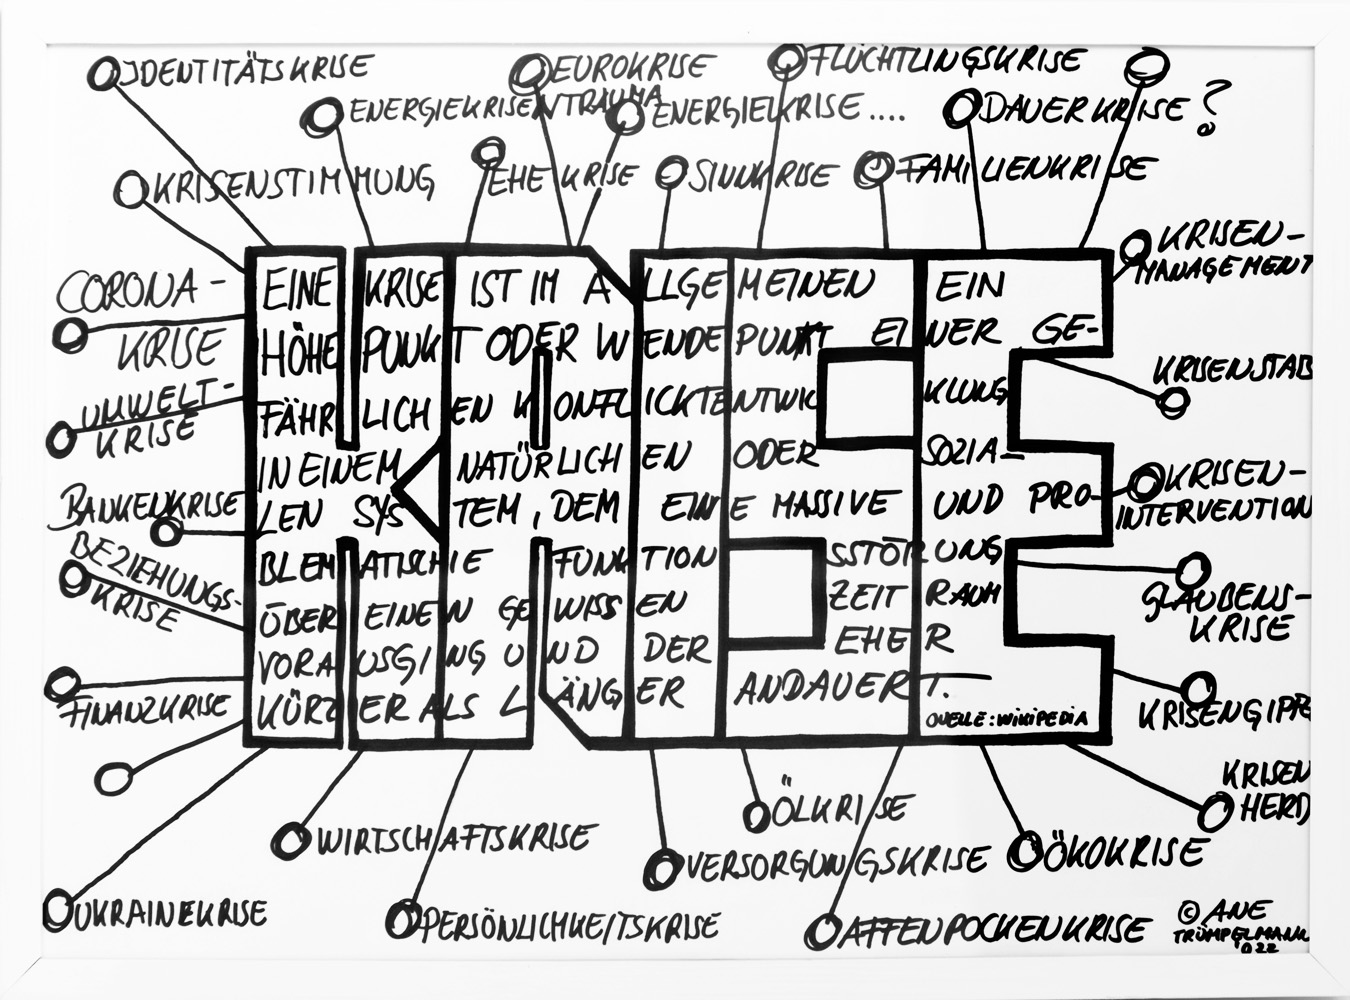 IDENTITÄTSKRISE
EUROKRISE
FLÜCHTLINGSKRISE
ENERGIEKRISENTRAUMA
ENERGIEKRISE ....
DAUERKRISE ?
KRISENSTIMMUNG
EHE KRISE
SINNKRISE
FAMILIENKRISE
KRISEN-
MANAGEMENT
CORONA-
KRISE
KRISENSTAB
UMWELT-
KRISE
BANKENKRISE
KRISEN-
INTERVENTION
BEZIEHUNGS-
KRISE
GLAUBENS-
KRISE
FINANZKRISE
KRISENGIPFE
KRISEN
HERD
EINE KRISE IST IM ALLGEMEINEN EIN
HÖHEPUNKT ODER WENDEPUNKT EINER GE-
FÄHRLICHEN KONFLICKTENTWICKLUNG
IN EINEM NATÜRLICHEN ODER SOZIA-
LEN SYSTEM, DEM EINE MASSIVE UND PRO-
BLEMATISCHE FUNKTIONSSTÖRUNG
ÜBER EINEN GEWISSEN ZEITRAUM
VORAUSGING UND DER EHER
KÜRZER ALS LÄNGER ANDAUERT.
QUELLE: WIKIPEDIA
ÖLKRISE
WIRTSCHAFTSKRISE
VERSORGUNGSKRISE
ÖKOKRISE
UKRAINEKRISE
PERSÖNLICHKEITSKRISE
AFFENPOCKENKRISE
© ANE
TRÜMPELMANN
022